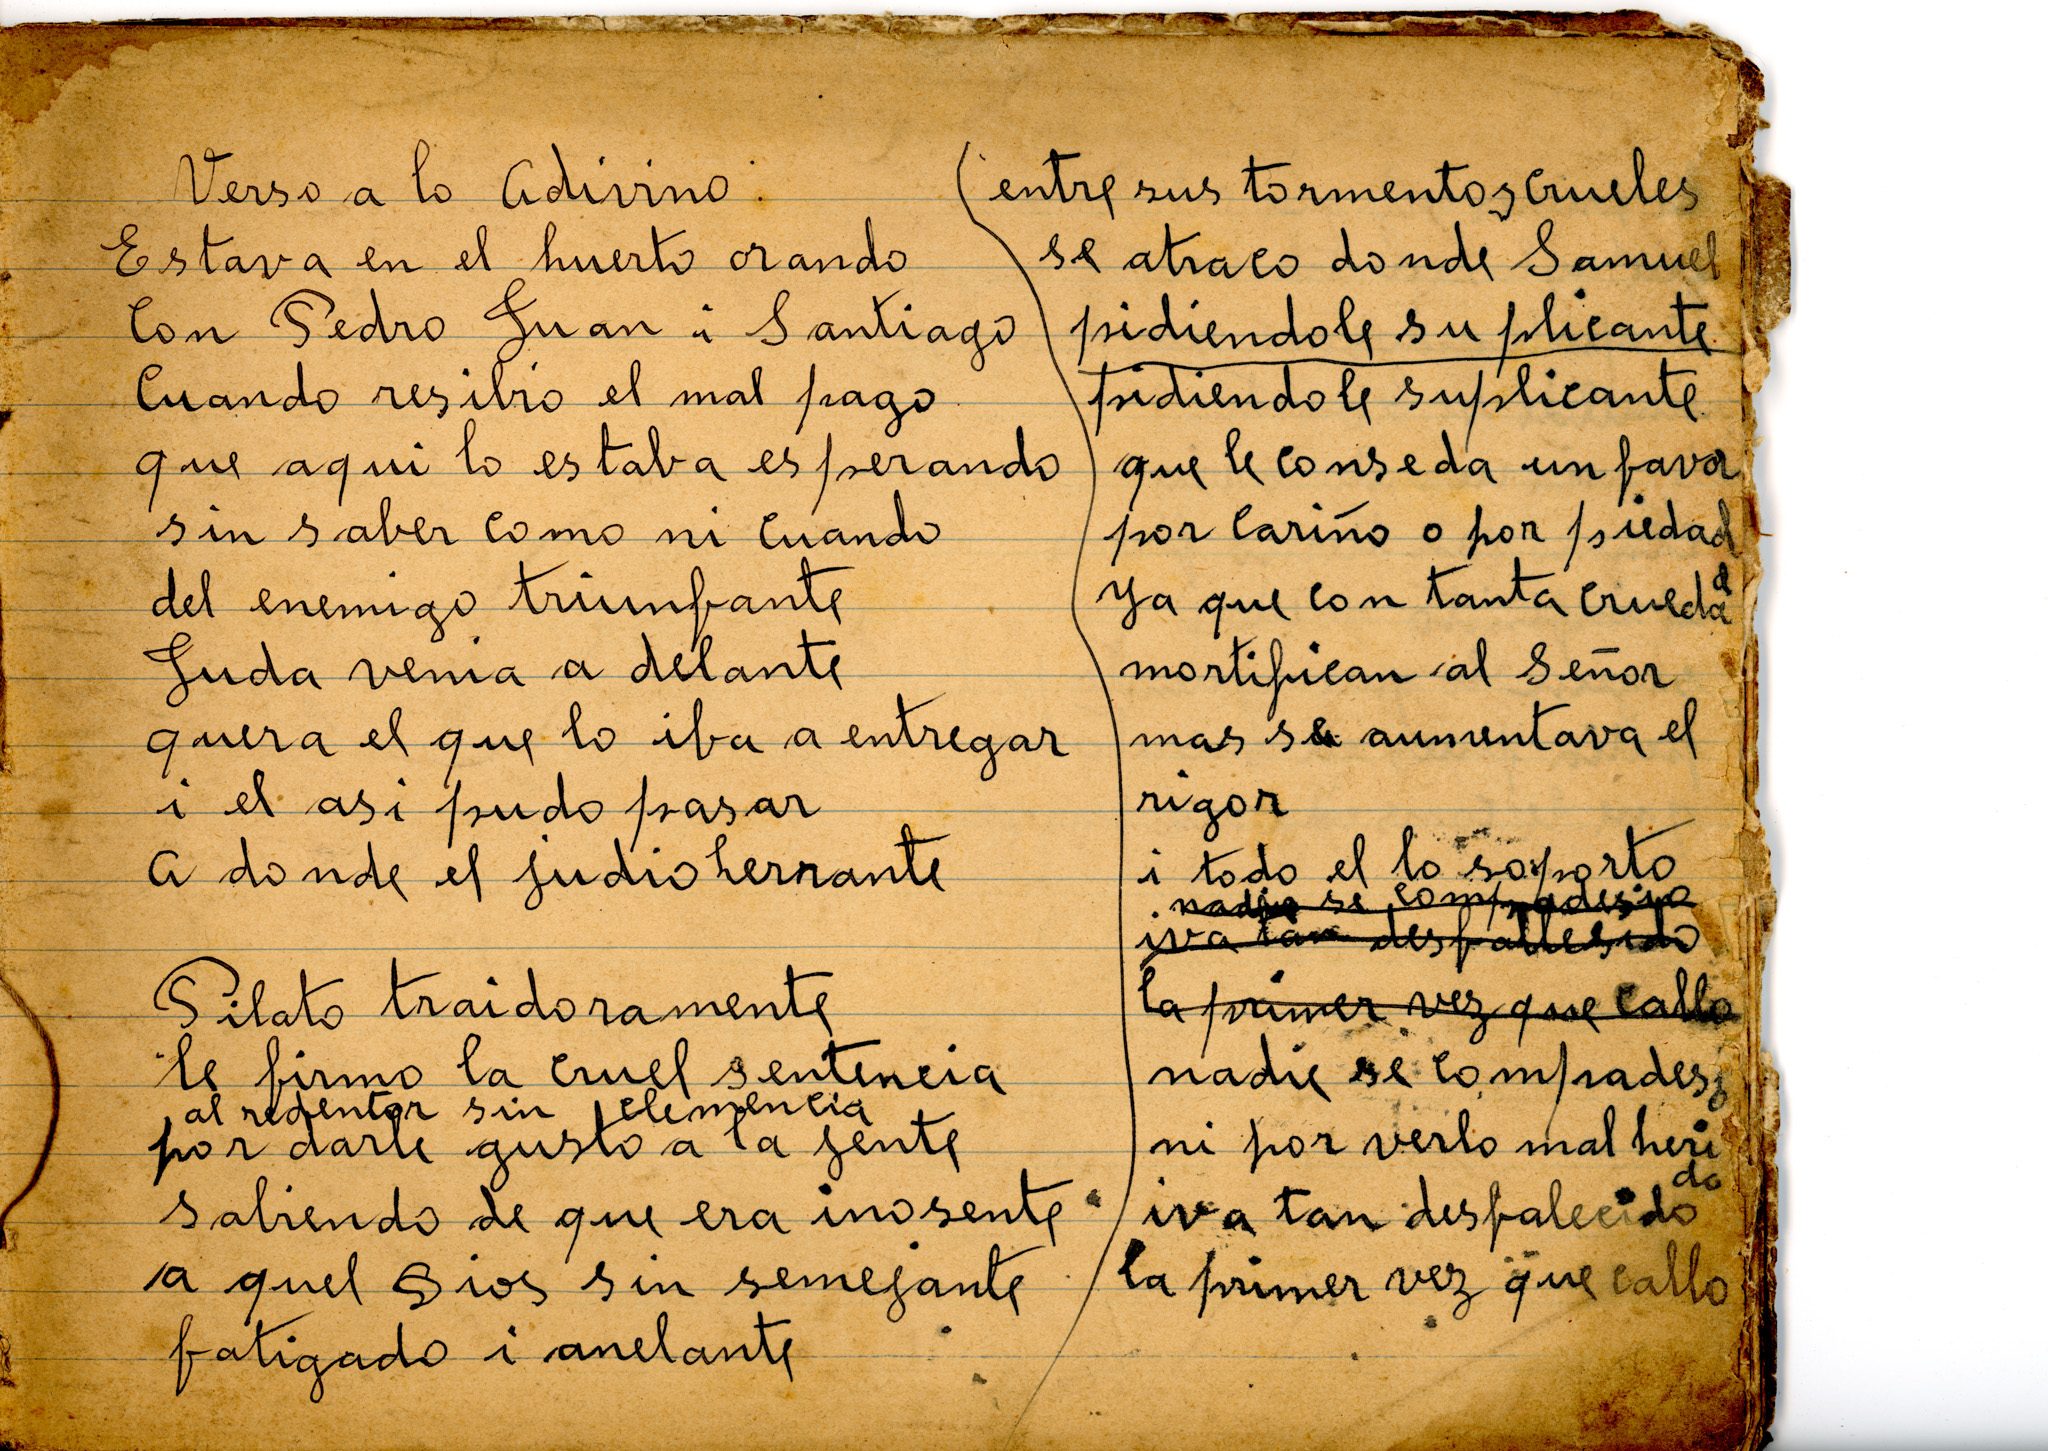 Verso a lo Adivino.
Estava en el huerto orando
Con Pedro Juan i Santiago
Cuando resibio el mal pago
que aqui lo estaba esperando
sin saber como ni cuando
del enemigo triunfante
Juda venia a delante
quera el que lo iba a entregar
i el asi pudo pasar
A donde el judio herrante
Pilato traidoramente
le firmo la cruel sentencia
al redentor sin clemencia
por darle gusto a la jente
sabiendo de que era inosente
a quel Dios sin semejante
fatigado i anelante
entre sus tormentos crueles
se atraco donde Samuel
pidiendole su plicante
pidiendole suplicante
que le conseda un favor
por cariño o por piedad
Ya que con tanta cruedad
mortifican al Señor
mas se aumentava el
rigor
i todo el lo soporto
nadie se compadesio
iva tan desfallesido
la primer vez que callo
nadie se compades
ni por verlo mal heri
do
iva tan desfalecido
la primer vez que callo